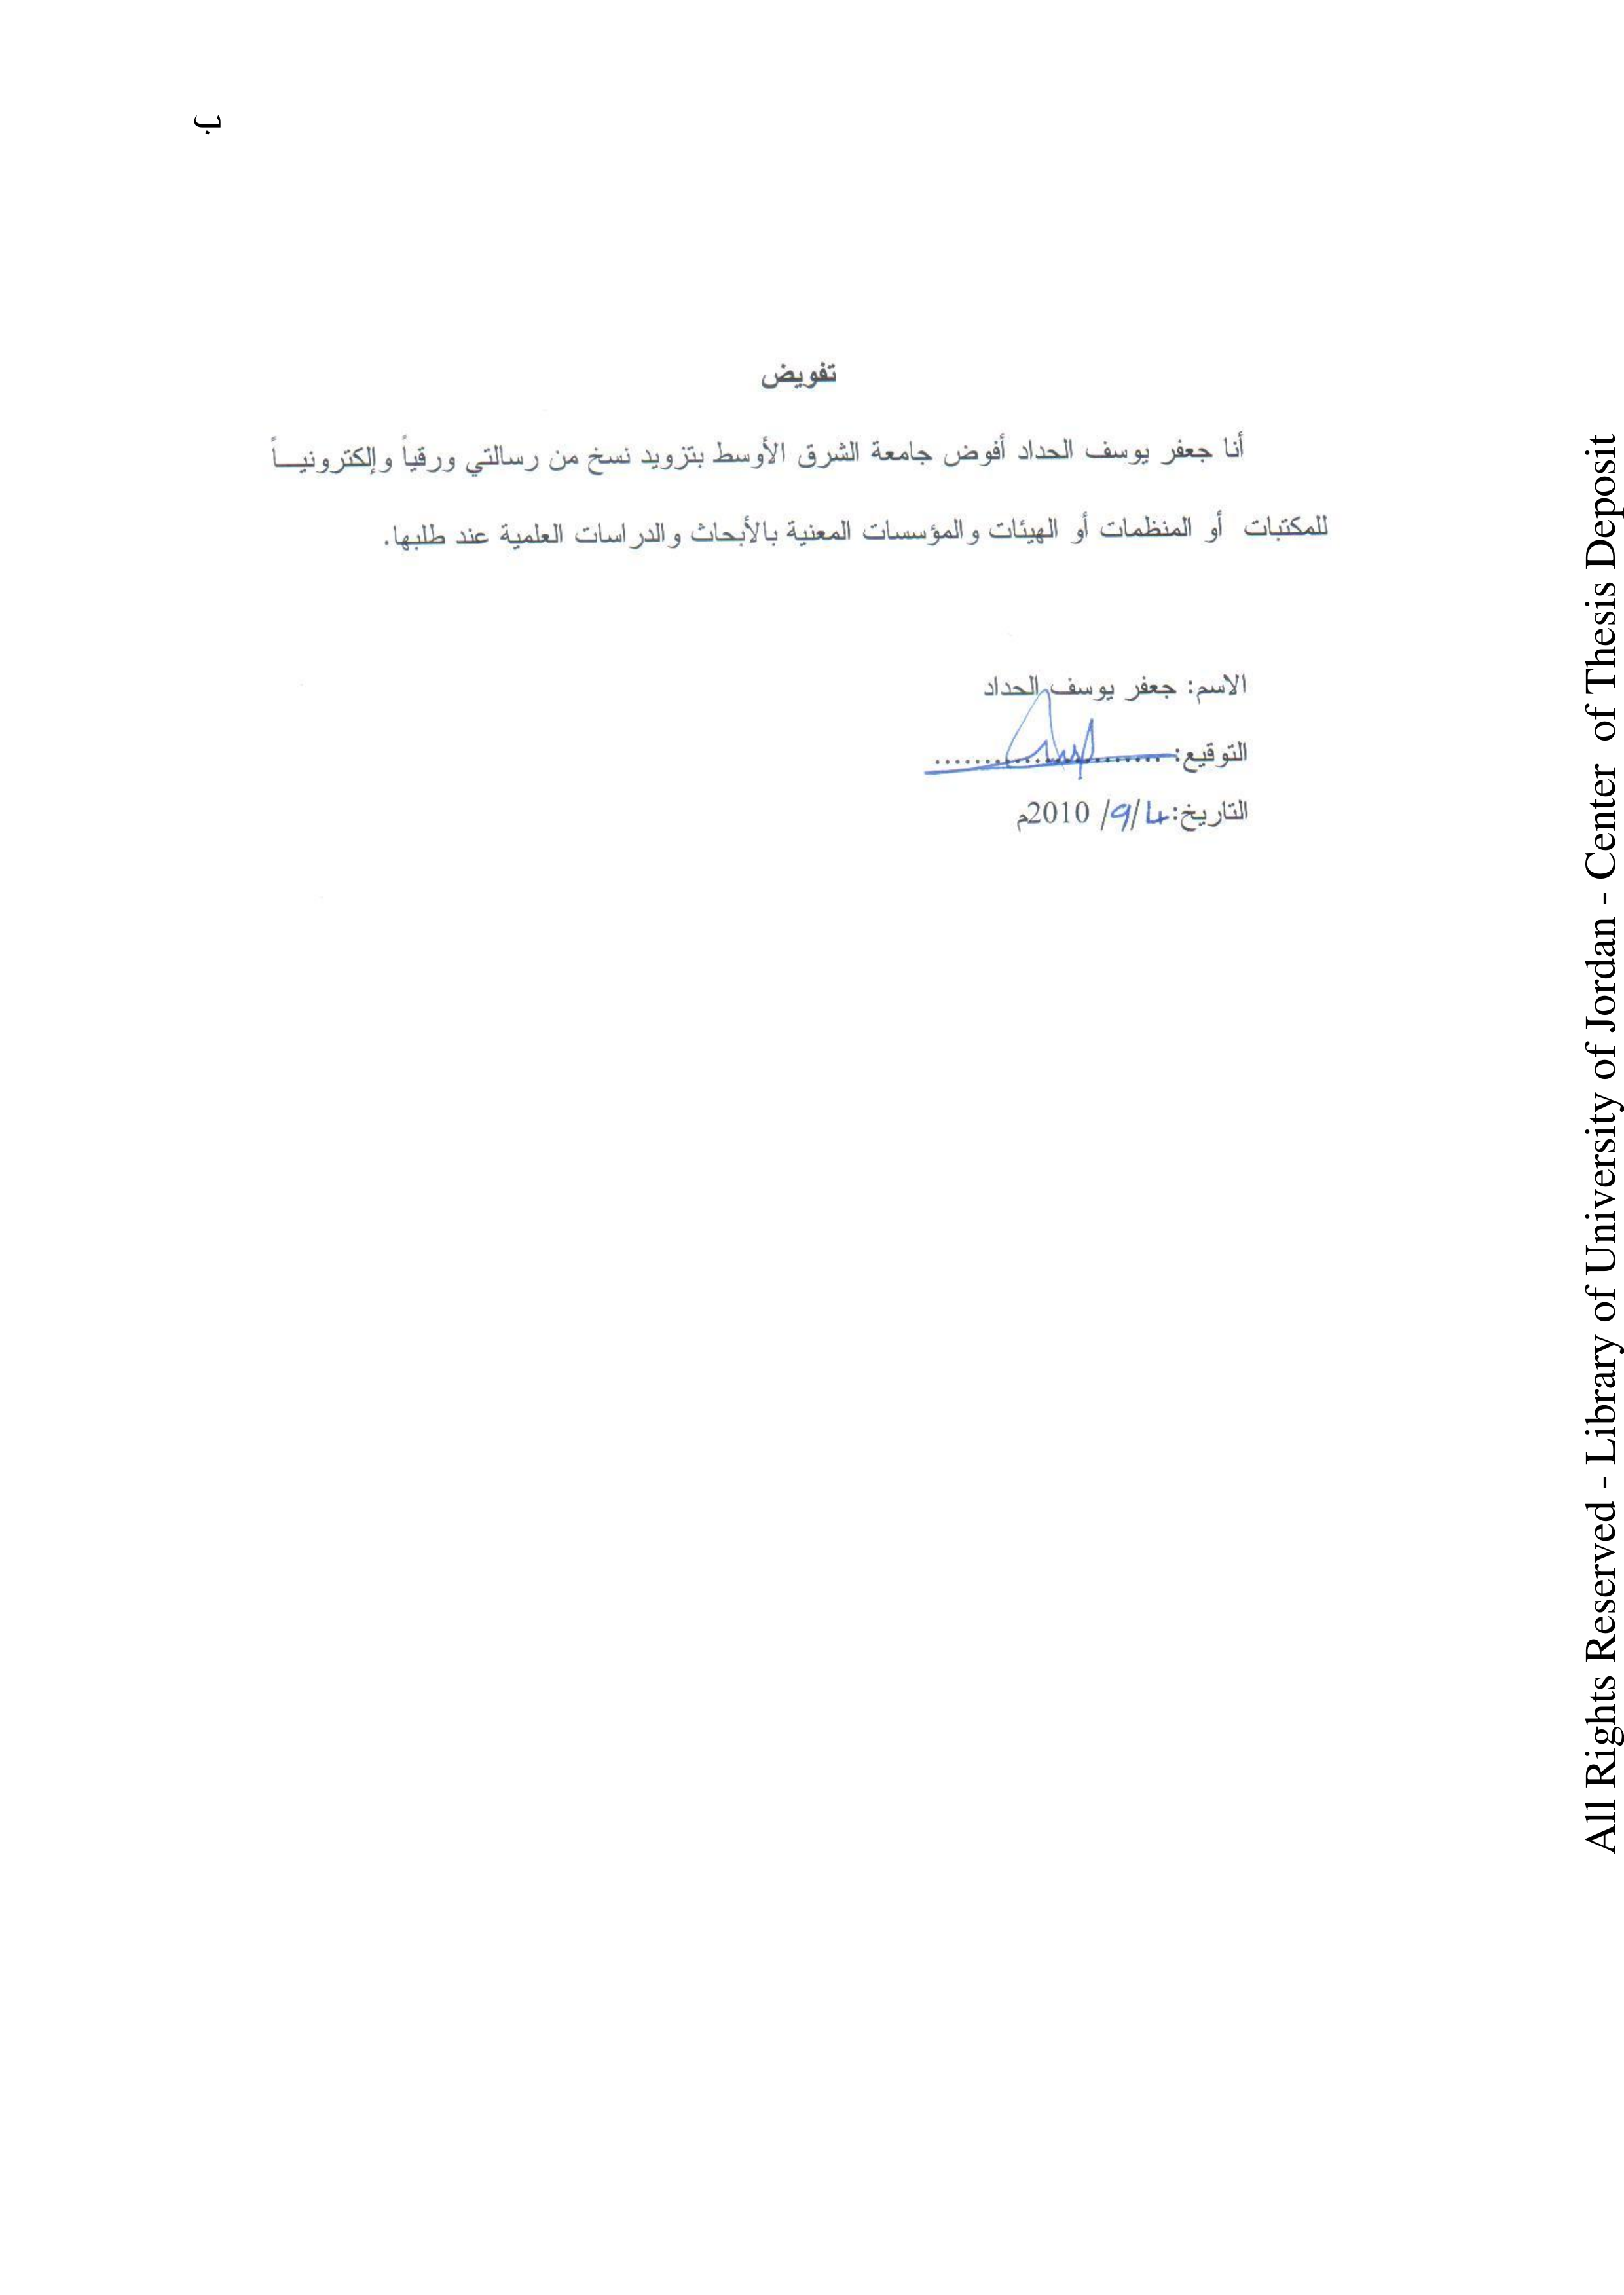 ب
تفويض
أنا جعفر يوسف الحداد أفوض جامعة الشرق الأوسط بتزويد نسخ من رسالتي ورقياً وإلكترونيــاً
للمكتبات أو المنظمات أو الهيئات والمؤسسات المعنية بالأبحاث والدراسات العلمية عند طلبها.
الاسم: جعفر يوسف الحداد
التوقيع: ........................
التاريخ: 4/9/ 2010م
All Rights Reserved - Library of University of Jordan - Center of Thesis Deposit